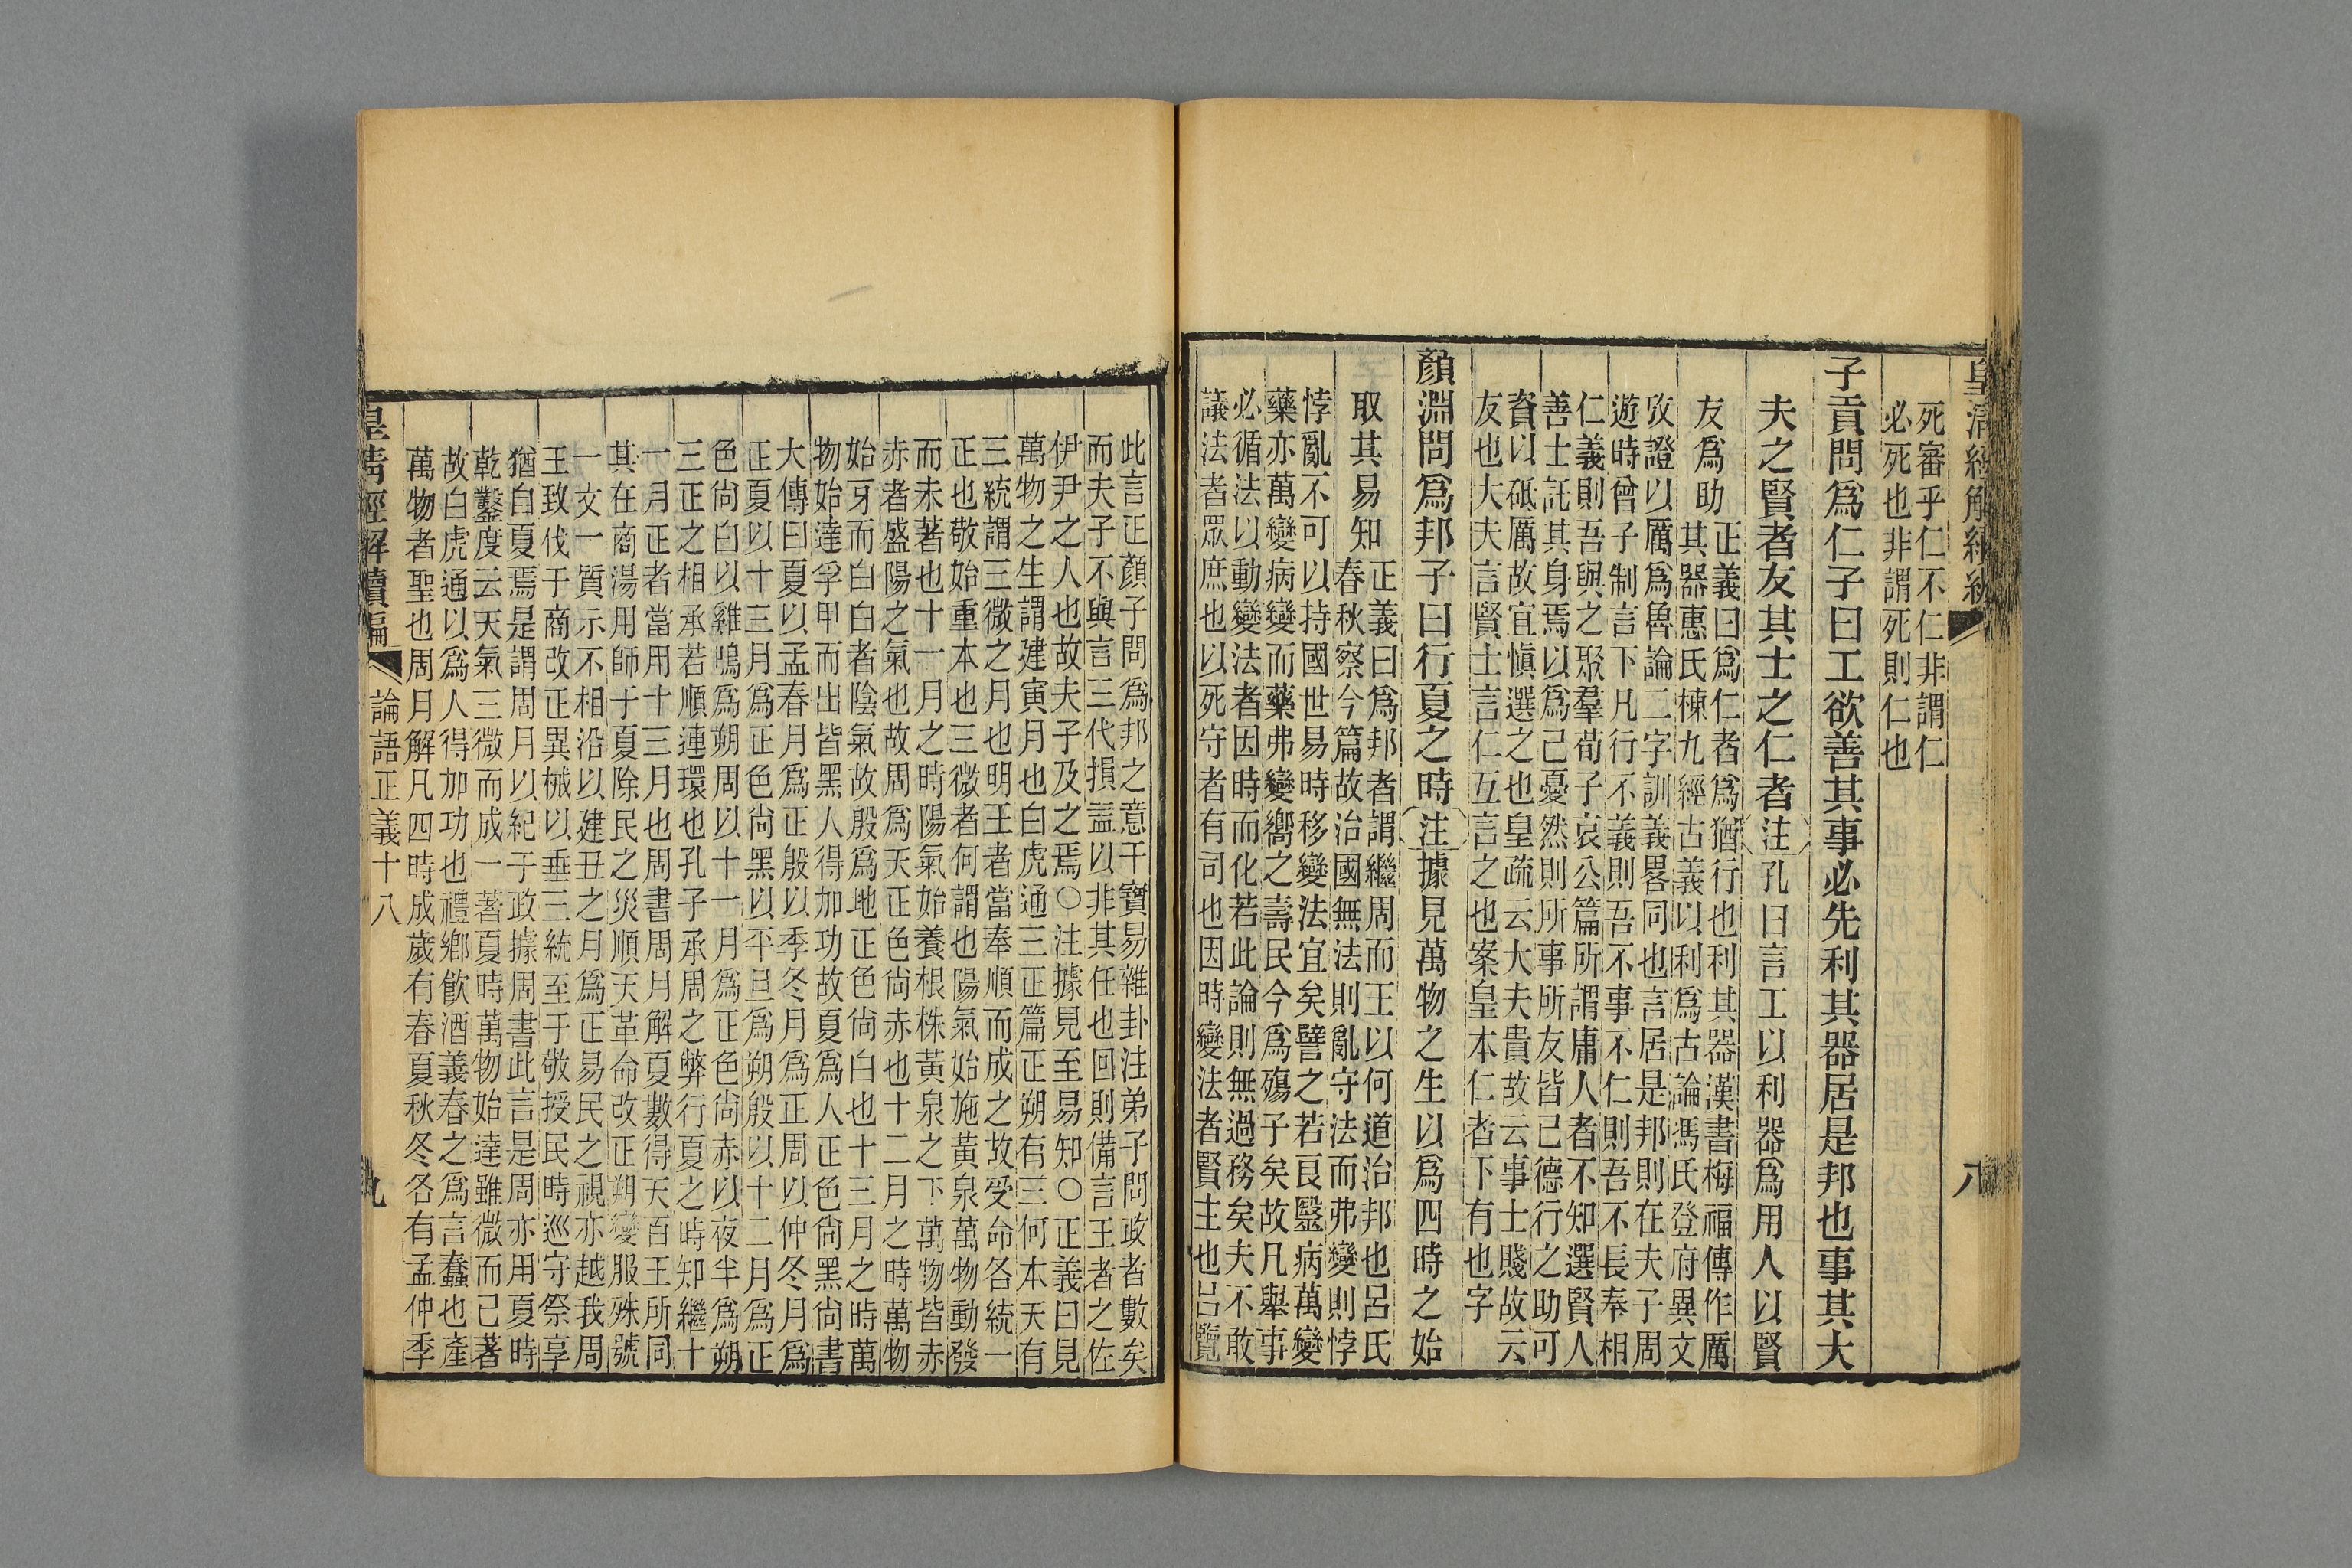 皇清經解續編
八
死審乎仁不仁非謂仁
必死也非謂死則仁也
子貢問爲仁子曰工欲善其事必先利其器居是邦也事其大
夫之賢者友其士之仁者注孔曰言工以利器爲用人以賢
友爲助
正義曰爲仁者爲猶行也利其器漢書梅福傳作厲
其器惠氏棟九經古義以利爲古論馮氏登府異文
攷證以厲爲魯論二字訓義畧同也言居是邦則在夫子周
遊時曾子制言下凡行不義則吾不事不仁則吾不長奉相
仁義則吾與之聚羣荀子哀公篇所謂庸人者不知選賢人
善士託其身焉以爲己憂然則所事所友皆己德行之助可
資以砥厲故宜愼選之也皇疏云大夫貴故云事士賤故云
友也大夫言賢士言仁互言之也案皇本仁者下有也字
顏淵問爲邦子曰行夏之時注據見萬物之生以爲四時之始
取其易知
正義曰爲邦者謂繼周而王以何道治邦也呂氏
春秋察今篇故治國無法則亂守法而弗變則悖
悖亂不可以持國世易時移變法宜矣譬之若良毉病萬變
藥亦萬變病變而藥弗變嚮之壽民今爲殤子矣故凡舉事
必循法以動變法者因時而化若此論則無過務矣夫不敢
議法者眾庶也以死守者有司也因時變法者賢主也呂覽
此言正顏子問爲邦之意干寶易雜卦注弟子問政者數矣
而夫子不與言三代損益以非其任也回則備言王者之佐
伊尹之人也故夫子及之焉○注據見至易知○正義曰見
萬物之生謂建寅月也白虎通三正篇正朔有三何本天有
三統謂三微之月也明王者當奉順而成之故受命各統一
正也敬始重本也三微者何謂也陽氣始施黃泉萬物動發
而未著也十一月之時陽氣始養根株黃泉之下萬物皆赤
赤者盛陽之氣也故周爲天正色尙赤也十二月之時萬物
始牙而白白者陰氣故殷爲地正色尙白也十三月之時萬
物始達孚甲而出皆黑人得加功故夏爲人正色尙黑尙書
大傳曰夏以孟春月爲正殷以季冬月爲正周以仲冬月爲
正夏以十三月爲正色尙黑以平旦爲朔殷以十二月爲正
色尙白以雞鳴爲朔周以十一月爲正色尙赤以夜半爲朔
三正之相承若順連環也孔子承周之弊行夏之時知繼十
一月正者當用十三月也周書周月解夏數得天百王所同
其在商湯用師于夏除民之災順天革命改正朔變服殊號
一文一質示不相沿以建丑之月爲正易民之視亦越我周
王致伐于商改正異械以垂三統至于敬授民時巡守祭享
猶自夏焉是謂周月以紀于政據周書此言是周亦用夏時
乾鑿度云天氣三微而成一著夏時萬物始達雖微而己著
故白虎通以爲人得加功也禮鄉飮酒義春之爲言蠢也產
萬物者聖也周月解凡四時成歲有春夏秋冬各有孟仲季
皇清經解續編
論語正義十八
九